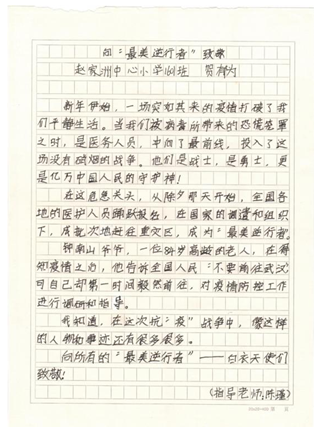 向“最美逆行者”致敬
赵家洲中心小学 班 贺
新年伊始，一场突如其来的疫情打破了我
们平静生活。当我们被病毒所带来的恐慌笼罩
之时，是医务人员，冲向了最前线，投入了这
场没有硝烟的战争。他们是战士，是勇士，更
是亿万中国人民的守护神！
在这危急关头，从除夕那天开始，全国各
地的医护人员踊跃报名，在国家的调遣和组织
下，成批次地赶往重灾区，成为“最美逆行者”
钟南山爷爷，一位84岁高龄的老人，在得
知疫情之初，他告诉全国人民：“不要前往武汉”
可自己却第一时间毅然前往，对疫情防控工作
进行调研和指导。
我知道，在这次抗“疫”战争中，像这样
的人物和事迹还有很多很多。
向所有的“最美逆行者”——白衣天使们
致敬！
（指导老师：陈 ）